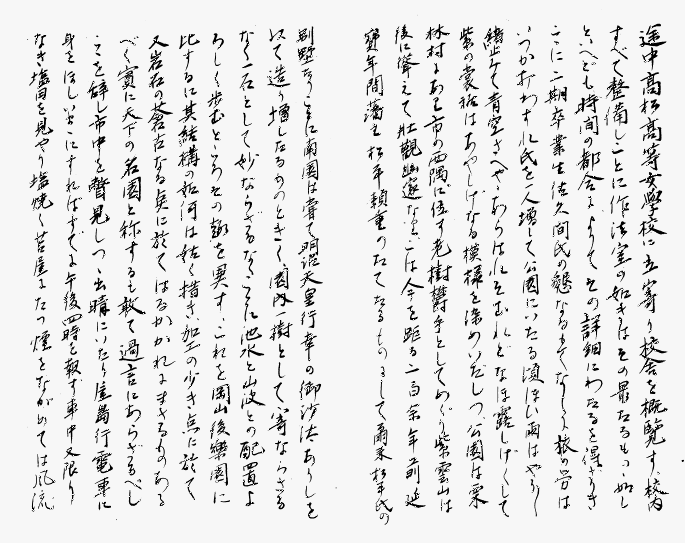 途中高松高等女學校に立寄り校舎を概覧す、校内
すべて整備しことに作法室の如きはその最たるもの如し
といへども時間の都合によりてその詳細にわたるを得ざりき
こゝに二期卒業生佐久間氏の懇なるもてなしより旅の労は
いつか打わすれ氏を一人増して公園にいたる頃ほい雨はやうく
緒止みて青空さへやゝあらはれそむれどなほ露しげくして
紫の裳裾はあやしげなる模様を染めいだしつ、公園は栗
林村にあり市の西隅に位す老樹欝乎としてめぐり紫雲山は
後に聳えて壮觀幽邃なりこは今を距る二百余年前延
寶年間藩主松平頼重のたてたるものにして爾来松平氏の
別墅なりことに南園は曽て明治天皇行幸の御沙汰ありしを
以て造り増したるものときく、園内一樹として寄ならざる
なく一石として妙ならざるなくことに池水と山波との配置よ
ろしく歩むところその趣を異す、これを岡山後樂園に
比するに其結構の如何は姑く措き加工の少き点に於て
又岩石の蒼古なる点に於てはるかかれにまさるものある
べく實に天下の名園と称するも敢て過言にあらざるべし
こゝを辞し市中を瞥見しつゝ出晴にいたり屋島行電車に
身をほしいまゝにすればすでに午後四時を報ず車中又限り
なき塩田を見やり塩焼く苫屋にたつ煙をながめては風流